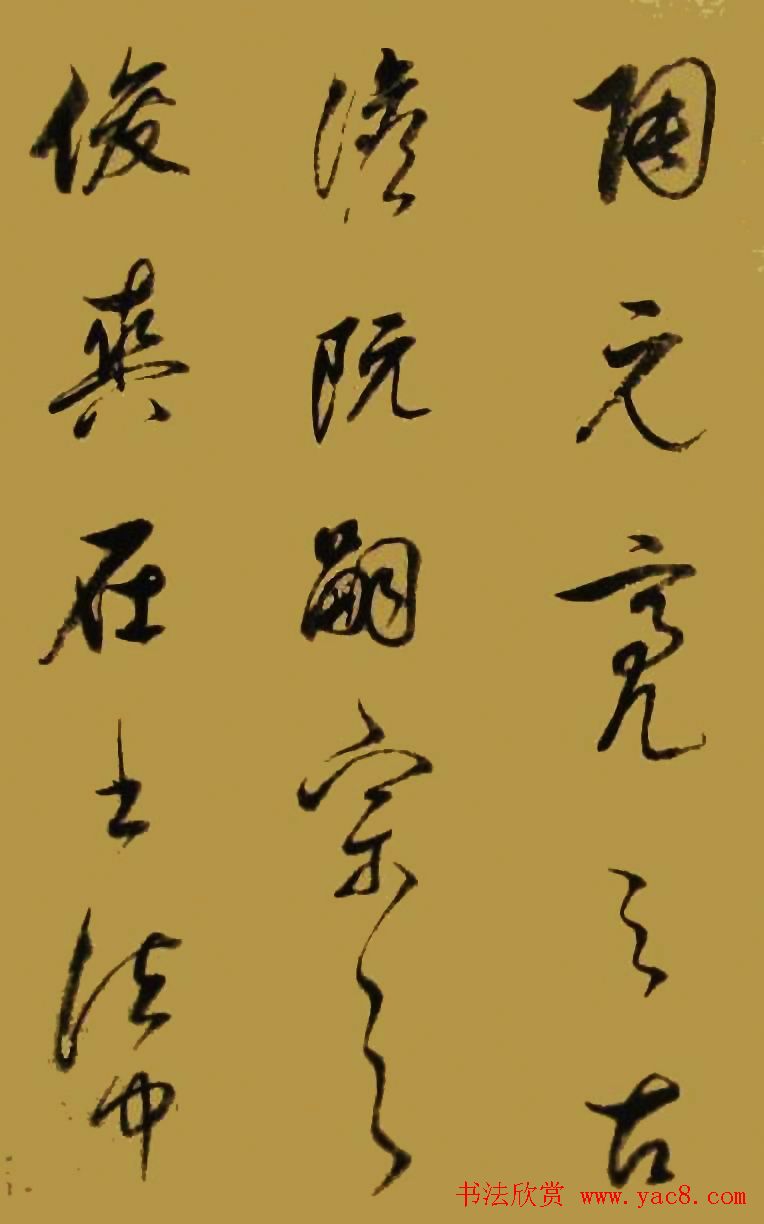 陶元亮之古
澹阮嗣宗之
俊爽在土法中
书法欣赏 www.yac8.com